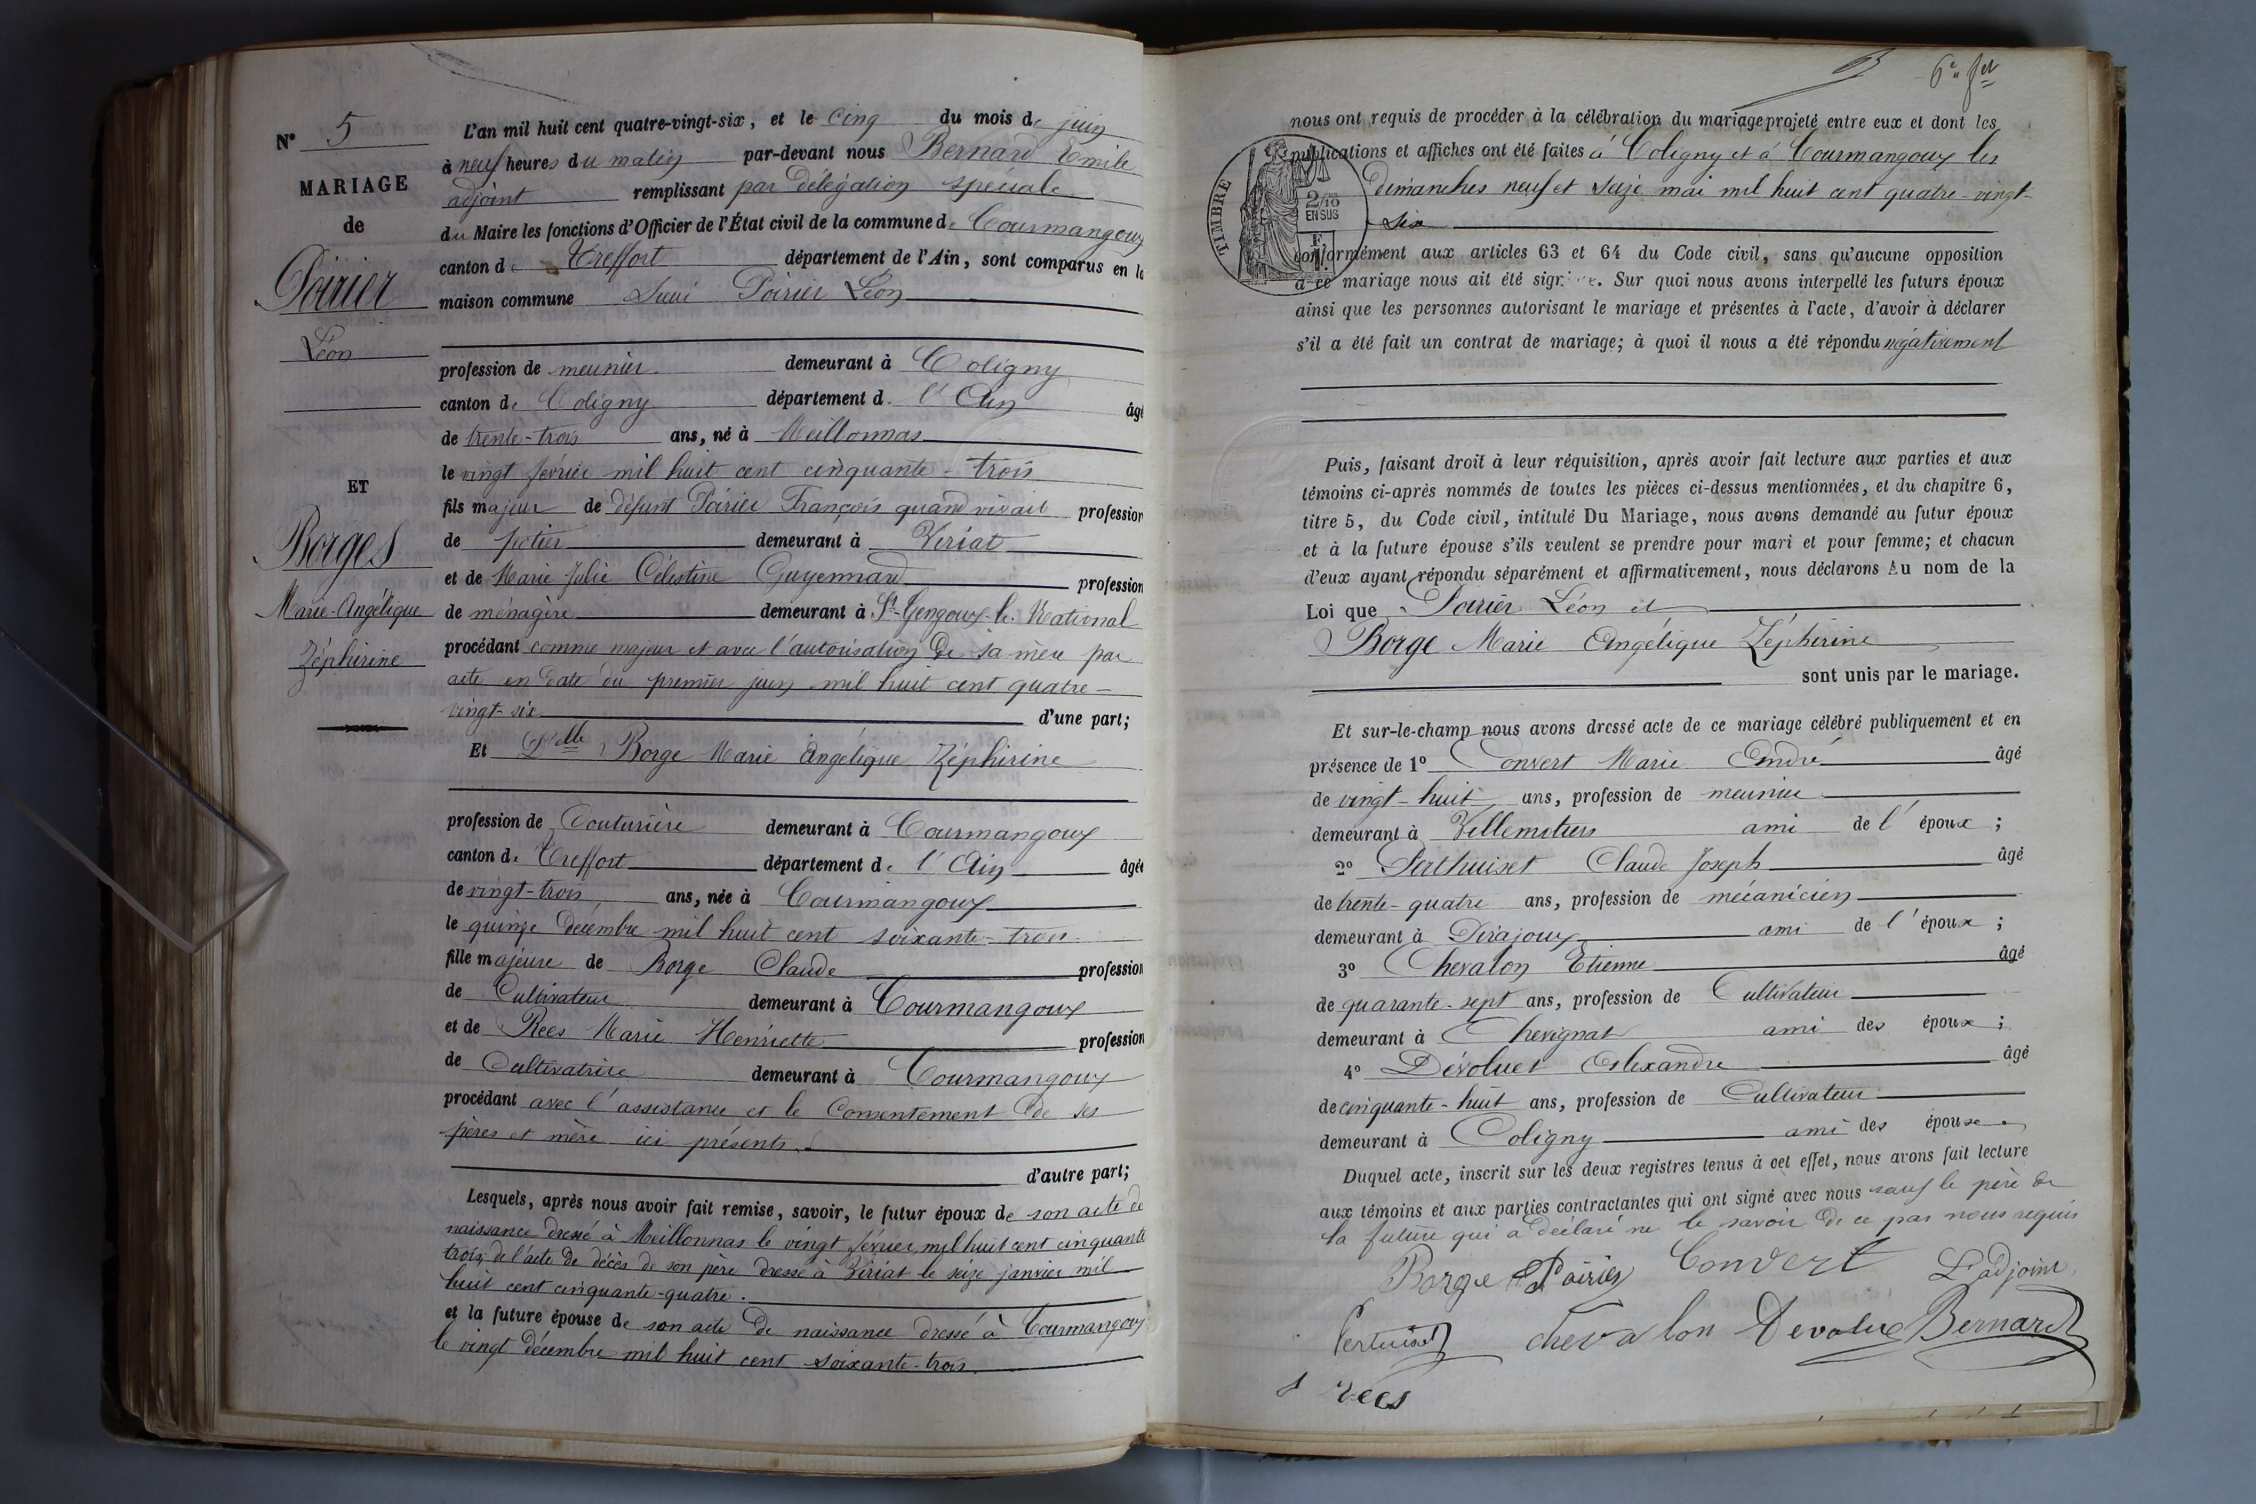 N° 5
MARIAGE
de
Poirier
Léon
ET
Borges
Marie-Angélique
Zéphirine
L'an mil huit cent quatre-vingt-six, et le cinq du mois de juin
à neuf heures du matin par-devant nous Bernard Emile
adjoint remplissant par délégation spéciale
du Maire les fonctions d'Officier de l'État civil de la commune de Courmangoux
canton de Treffort département de l'Ain, sont comparus en la
maison commune Poirier Léon
profession de meunier demeurant à Coligny
canton de Coligny département d. l'Ain âgé
de trente-trois ans, né à Meillonnas
le vingt février mil huit cent cinquante-trois
fils majeur de défunt Poirier François quand vivait profession
de potier demeurant à Viriat
et de Marie Julie Célestine Guyennard profession
de ménagère demeurant à St-Gengoux-le-National
procédant comme majeur et avec l'autorisation de sa mère par
acte en date du premier juin mil huit cent quatre-
vingt-six d'une part;
Et Delle Borge Marie Angélique Zéphirine
profession de Couturière demeurant à Courmangoux
canton de Treffort département de l'Ain âgée
de vingt-trois ans, née à Courmangoux
le quinze décembre mil huit cent soixante-trois
fille majeure de Borge Claude profession
de Cultivateur demeurant à Courmangoux
et de Rees Marie Henriette profession
de Cultivatrice demeurant à Courmangoux
procédant avec l'assistance et le Consentement de ses
pères et mère ici présents.
d'autre part;
Lesquels, après nous avoir fait remise, savoir, le futur époux de son acte de
naissance dressé à Meillonnas le vingt février mil huit cent cinquante
trois, de l'acte de décès de son père dressé à Viriat le seize janvier mil
huit cent cinquante-quatre.
et la future épouse de son acte de naissance dressé à Courmangoux
le vingt décembre mil huit cent soixante-trois
6e fet
nous ont requis de procéder à la célébration du mariage projeté entre eux et dont les
publications et affiches ont été faites à Coligny et à Courmangoux les
dimanches neuf et seize mai mil huit cent quatre-vingt-
six
TIMBRE
2/10
EN SUS
conformément aux articles 63 et 64 du Code civil, sans qu'aucune opposition
à ce mariage nous ait été signifiée. Sur quoi nous avons interpellé les futurs époux
ainsi que les personnes autorisant le mariage et présentes à l'acte, d'avoir à déclarer
s'il a été fait un contrat de mariage; à quoi il nous a été répondu négativement
Puis, faisant droit à leur réquisition, après avoir fait lecture aux parties et aux
témoins ci-après nommés de toutes les pièces ci-dessus mentionnées, et du chapitre 6,
titre 5, du Code civil, intitulé Du Mariage, nous avons demandé au futur époux
et à la future épouse s'ils veulent se prendre pour mari et pour femme; et chacun
d'eux ayant répondu séparément et affirmativement, nous déclarons Au nom de la
Loi que Poirier Léon et
Borge Marie Angélique Zéphirine
sont unis par le mariage.
Et sur-le-champ nous avons dressé acte de ce mariage célébré publiquement et en
présence de 1° Convert Marie André âgé
de vingt-huit ans, profession de meunier
demeurant à Villemotiers ami de l'époux;
2° Perthuiset Claude Joseph âgé
de trente-quatre ans, profession de mécanicien
demeurant à Pirajoux ami de l'époux;
3° Chevalon Etienne âgé
de quarante-sept ans, profession de Cultivateur
demeurant à Chevignat ami des époux;
4° Dévoluet Alexandre âgé
de cinquante-huit ans, profession de Cultivateur
demeurant à Coligny ami des épouse
Duquel acte, inscrit sur les deux registres tenus à cet effet, nous avons fait lecture
aux témoins et aux parties contractantes qui ont signé avec nous sauf le père de
la future qui a déclaré ne le savoir de ce par nous requis
Borge Poirier Convert L'adjoint
Pertuiset chevalon Devolue Bernard
rees